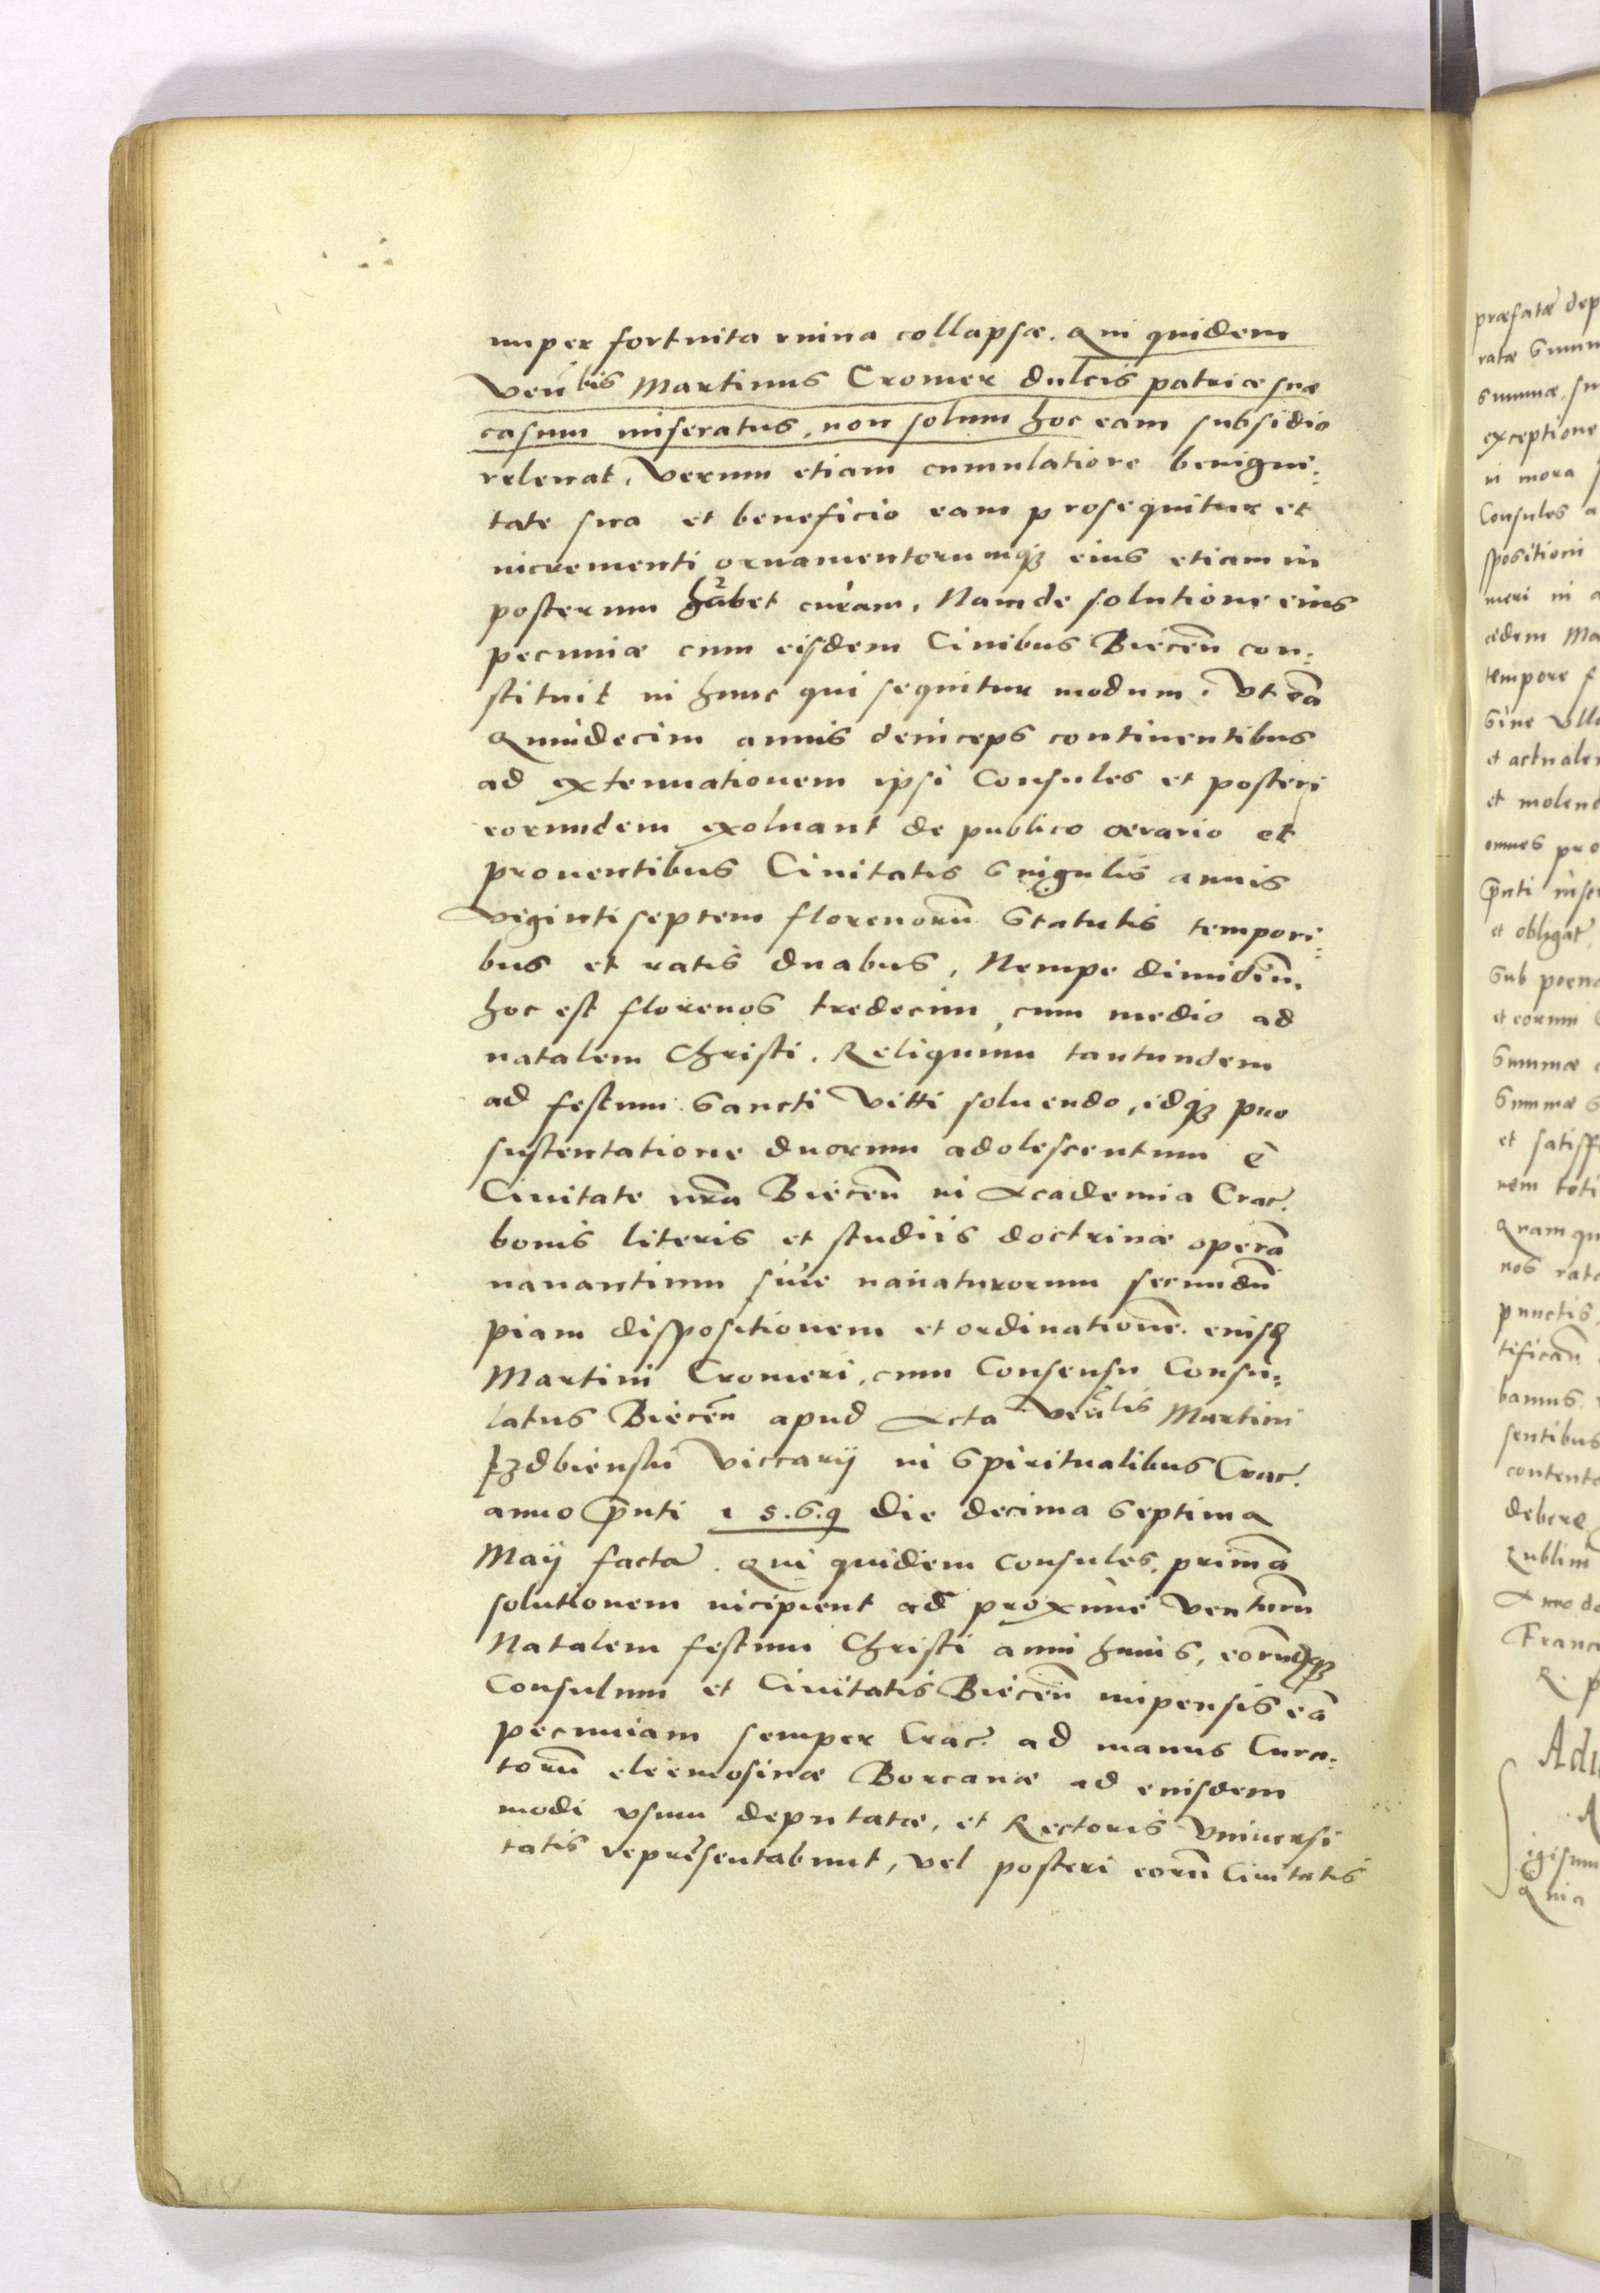 nuper fortuita ruina collapsæ. Qui quidem
Ven̄bis Martinus Cromer dulcis patriæ suæ
casum miseratus, non solum hoc eam subsidio
releuat, verum etiam cumulatiore benigni:
tate sua et beneficio eam prosequitur et
incrementi ornamentorumq̃ eius etiam in
posterum habet curam, Nam de solutione eius
pecuniæ cum eisdem Ciuibus Biecen̄ con:
stituit in hunc qui sequitur modum. Vt eā
Quindecim annis deinceps continentibus
ad extenuationem ipsi Consules et posteri
eorundem exoluant de publico ærario et
prouentibus Ciuitatis singulis annis
viginti septem florenorū statutis tempori:
bus et ratis duabus, Nempe dimidiū,
hoc est florenos tredecim, cum medio ad
natalem Christi. Reliquum tantundem
ad festum Sancti Vitti soluendo, idq̃ pro
sustentatione duorum adolescentum è
Ciuitate nr̄a Biecen̄ in Academia Crac.
bonis literis et studiis doctrinæ operā
nauantium siue nauaturorum secundū
piam dispositionem et ordinationē. eiusd
Martini Cromeri, cum Consensu Consu:
latus Biecen̄ apud Acta Ven̄lis Martini
Izdbienski Viccarij in Spiritualibus Crac.
anno p̄nti 1 5.6.9 die decima Septima
Maij facta. Qui quidem Consules, primā
solutionem incipient ad proxime venturū
Natalem festum Christi anni huius, eorūdq̃
Consulum et Ciuitatis Biecen̄ impensis eā
pecuniam semper Crac. ad manus Cura:
torū eleemosinæ Borcanæ ad eiusdem
modi vsum deputatæ, et Rectoris Vniuersi
tatis repræsentabunt, vel posteri eorū Ciuitatis
præfatæ dep
ratæ summ
summæ, su
exceptione
in mora
Consules a
spositioni
meri in a
ædem Ma
tempore f
sine vlla
et actualem
et molend
omnes pro
p̄nti inse
et obligat
sub poena
et eorum
summæ
summæ s
et satisf
nem toti
Quam qu
nos rata
punctis
tifican̄
bamus
sentibus
contento
debere
Franc
R. p
igismu
Quia